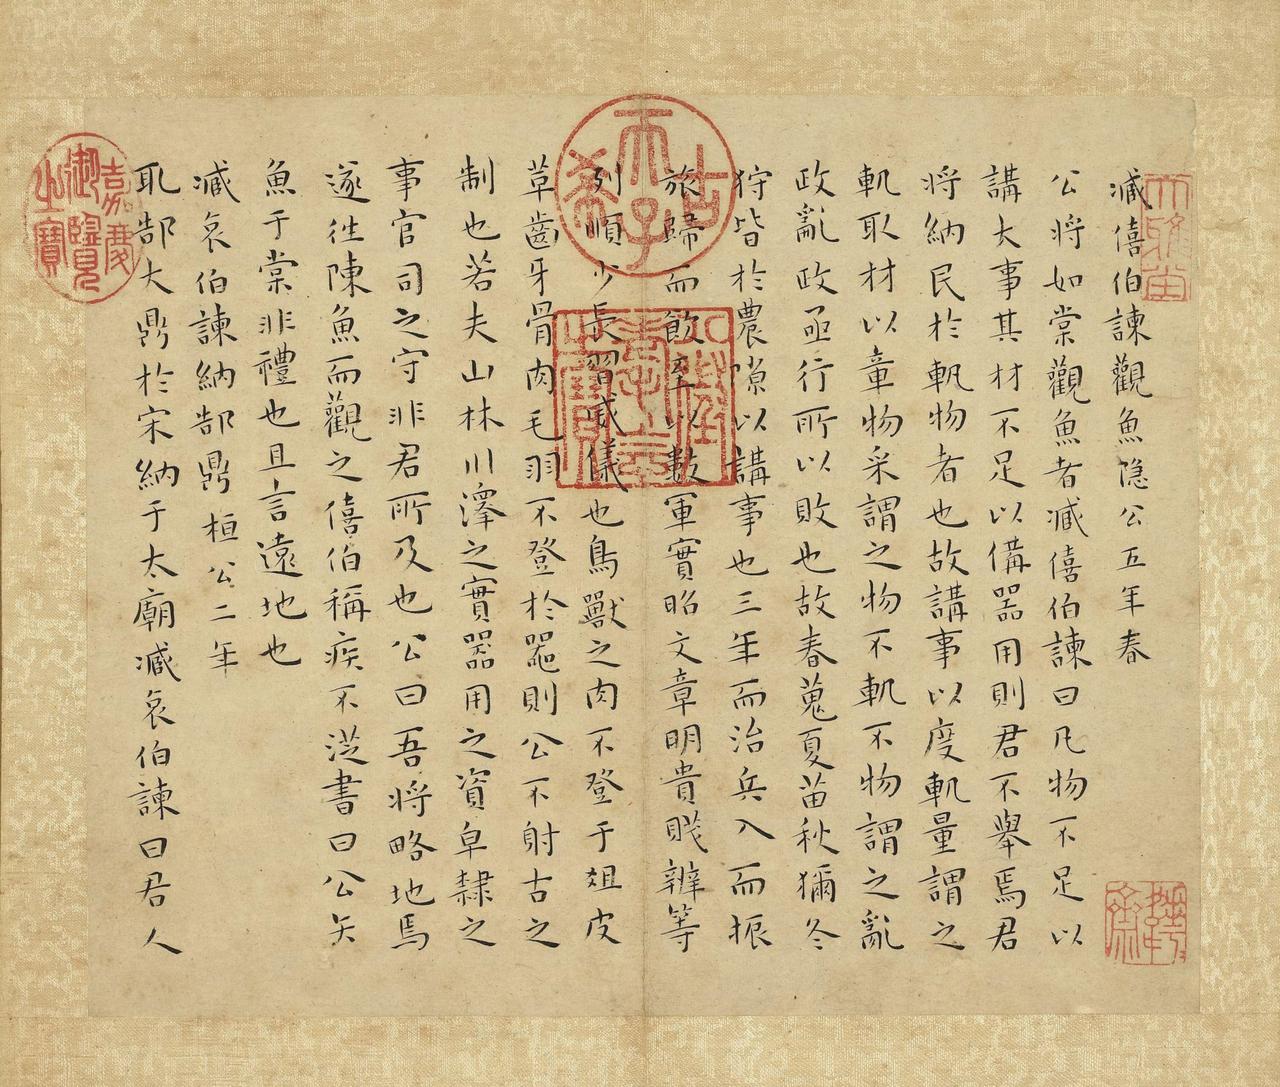 臧僖伯諫觀魚隱公五年春
公將如棠觀魚者臧僖伯諫曰凡物不足以
講大事其材不足以備器用則君不舉焉君
將納民於軌物者也故講事以度軌量謂之
軌取材以章物采謂之物不軌不物謂之亂
政亂政亟行所以敗也故春蒐夏苗秋獮冬
狩皆於農隙以講事也三年而治兵入而振
旅歸而飲至以數軍實昭文章明貴賤辨等
列順少長習威儀也鳥獸之肉不登于俎皮
革齒牙骨肉毛羽不登於器則公不射古之
制也若夫山林川澤之實器用之資皁隸之
事官司之守非君所及也公曰吾將略地焉
遂往陳魚而觀之僖伯稱疾不從書曰公矢
魚于棠非禮也且言遠地也
臧哀伯諫納郜鼎桓公二年
取郜大鼎於宋納于太廟臧哀伯諫曰君人
古希天子
嘉慶御覽之寶